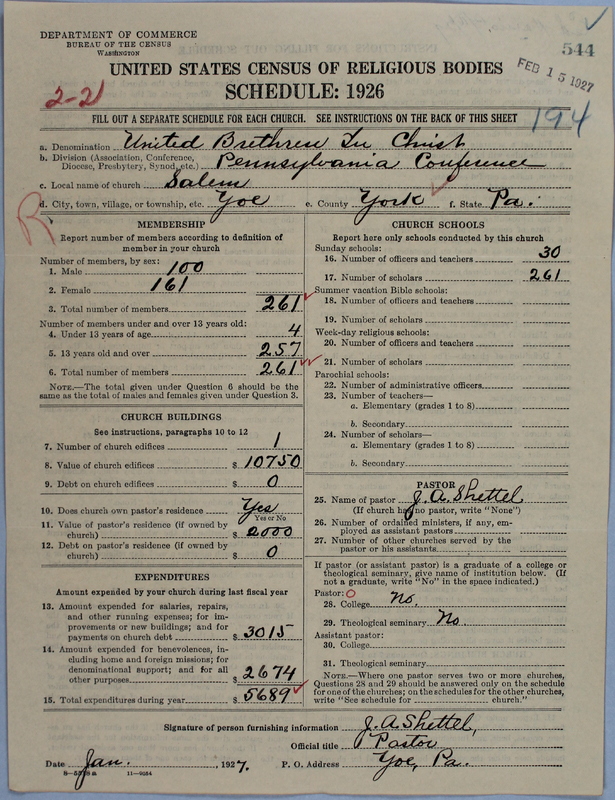 DEPARTMENT OF COMMERCE
BUREAU OF THE CENSUS
WASHINGTON
544
FEB 15 1927
UNITED STATES CENSUS OF RELIGIOUS BODIES
2-21
SCHEDULE: 1926
FILL OUT A SEPARATE SCHEDULE FOR EACH CHURCH. SEE INSTRUCTIONS ON THE BACK OF THIS SHEET
194
a. Denomination United Brethren In Christ
b. Division (Association, Conference, Diocese, Presbytery, Synod, etc.) Pennsylvania Conference
c. Local name of church Salem
d. City, town, village, or township, etc. Yoe e. County York f. State Pa.
R
MEMBERSHIP
Report number of members according to definition of
member in your church
Number of members, by sex:
1. Male 100
2. Female 161
3. Total number of members 261
Number of members under and over 13 years old:
4. Under 13 years of age 4
5. 13 years old and over 257
6. Total number of members 261
NOTE.—The total given under Question 6 should be the
same as the total of males and females given under Question 3.
CHURCH BUILDINGS
See instructions, paragraphs 10 to 12
7. Number of church edifices 1
8. Value of church edifices $ 10750
9. Debt on church edifices $ 0
10. Does church own pastor's residence Yes
Yes or No
11. Value of pastor's residence (if owned by
church) $ 2000
12. Debt on pastor's residence (if owned by
church) $ 0
EXPENDITURES
Amount expended by your church during last fiscal year
13. Amount expended for salaries, repairs,
and other running expenses; for im-
provements or new buildings; and for
payments on church debt $ 3015
14. Amount expended for benevolences, in-
cluding home and foreign missions; for
denominational support; and for all
other purposes $ 2674
15. Total expenditures during year $ 5689
CHURCH SCHOOLS
Report here only schools conducted by this church
Sunday schools:
16. Number of officers and teachers 30
17. Number of scholars 261
Summer vacation Bible schools:
18. Number of officers and teachers
19. Number of scholars
Week-day religious schools:
20. Number of officers and teachers
21. Number of scholars
Parochial schools:
22. Number of administrative officers
23. Number of teachers—
a. Elementary (grades 1 to 8)
b. Secondary
24. Number of scholars—
a. Elementary (grades 1 to 8)
b. Secondary
PASTOR
25. Name of pastor J. A. Shettel
(If church has no pastor, write "None")
26. Number of ordained ministers, if any, em-
ployed as assistant pastors
27. Number of other churches served by the
pastor or his assistants
If pastor (or assistant pastor) is a graduate of a college or
theological seminary, give name of institution below. (If
not a graduate, write "No" in the space indicated.)
Pastor: O
28. College No.
29. Theological seminary No.
Assistant pastor:
30. College
31. Theological seminary
NOTE.—Where one pastor serves two or more churches,
Questions 28 and 29 should be answered only on the schedule
for one of the churches; on the schedules for the other churches,
write "See schedule for church."
Signature of person furnishing information J. A. Shettel,
Official title Pastor
Date Jan. , 1927. P. O. Address Yoe, Pa.
11—9254